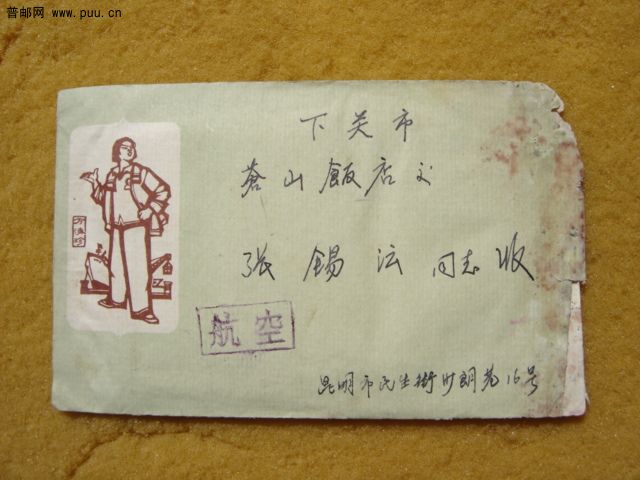 普邮网 www.puu.cn
下关市
蒼山飯店交
张锡沄同志收
方海珍
航空
昆明市民生街沙朗巷16号